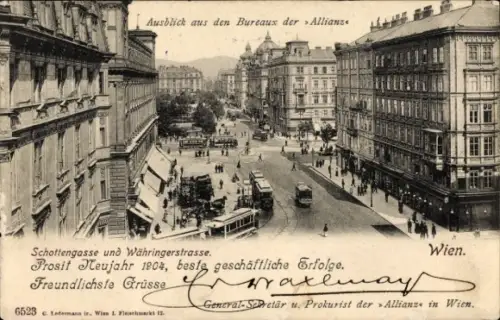 Ausblick aus den Bureaux der »Allianz«
Schottengasse und Währingerstrasse.
Wien.
Prosit Neujahr 1904, beste geschäftliche Erfolge.
Freundlichste Grüsse
General-Sekretär u. Prokurist der "Allianz" in Wien.
6523 C. Ledermann jr., Wien I. Fleischmarkt 12.